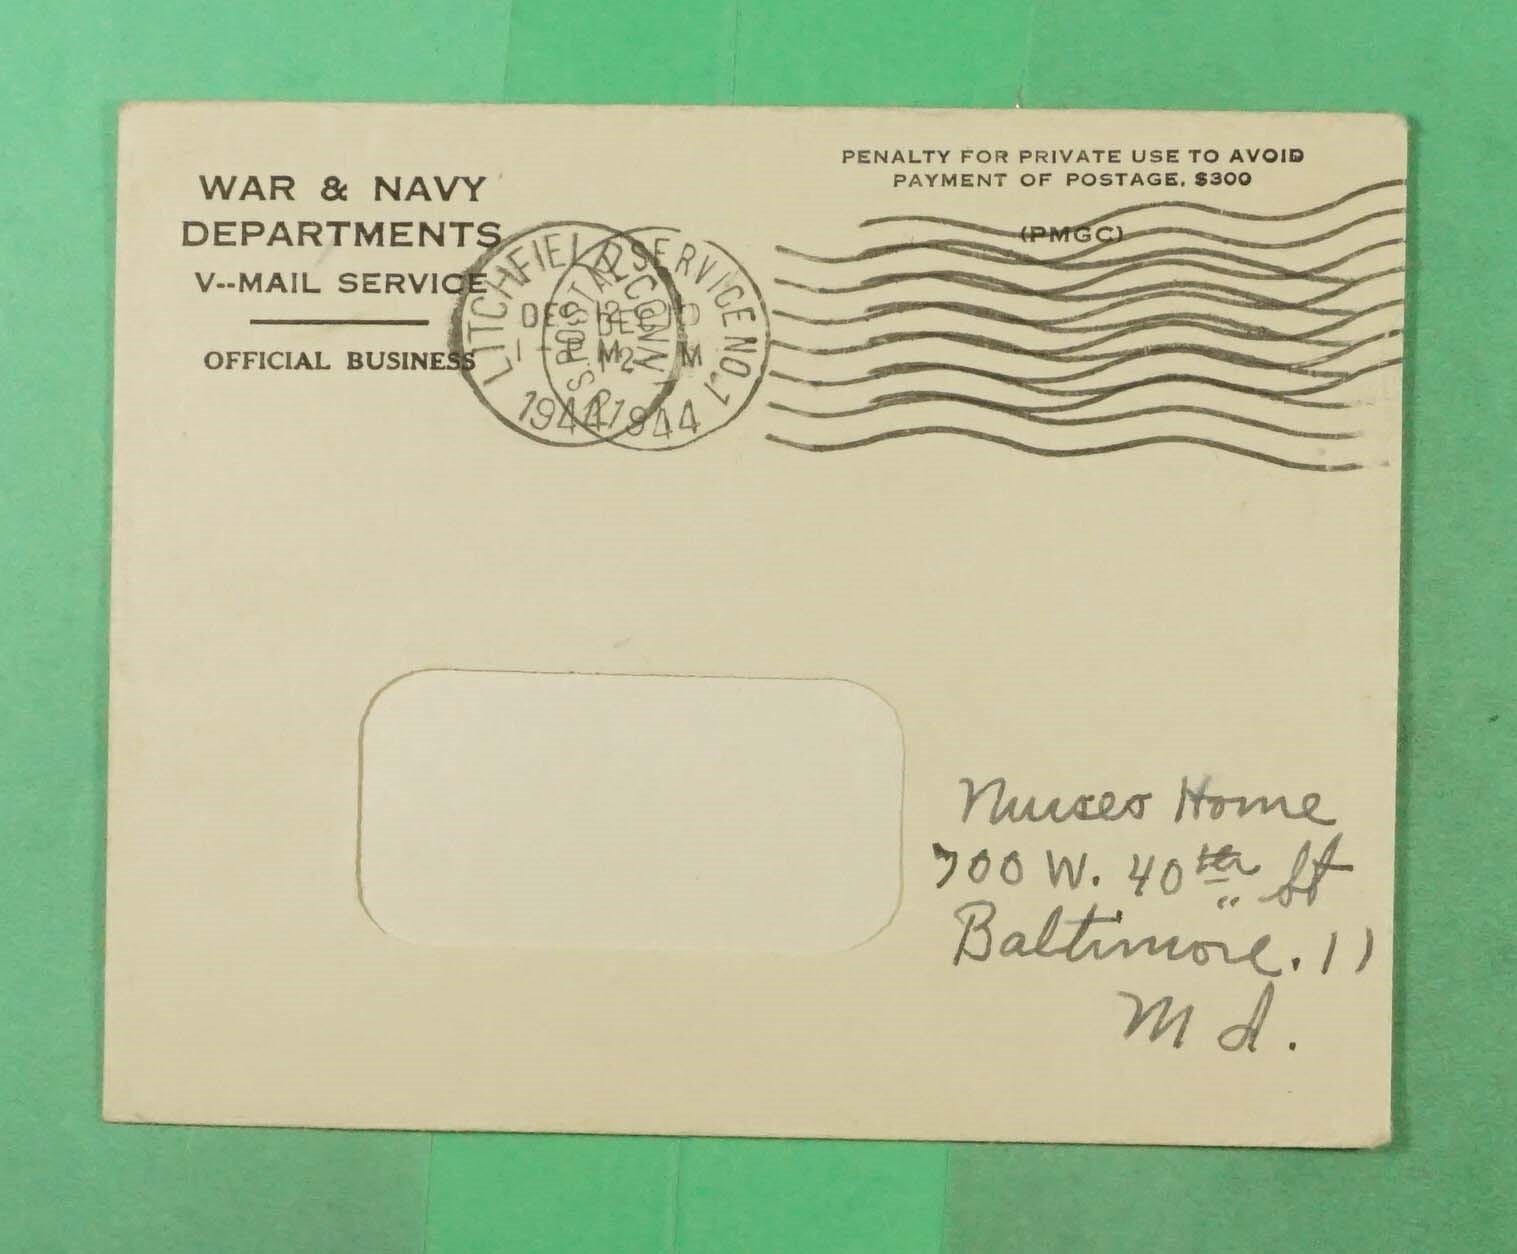 WAR & NAVY
DEPARTMENTS
V--MAIL SERVICE
OFFICIAL BUSINESS
PENALTY FOR PRIVATE USE TO AVOID
PAYMENT OF POSTAGE, $300
(PMGC)
LITCHFIELD CONN.
DEC 12
1944
U.S. POSTAL SERVICE NO. 1
DEC
1944
Nurses Home
700 W. 40th St
Baltimore. 11
Md.